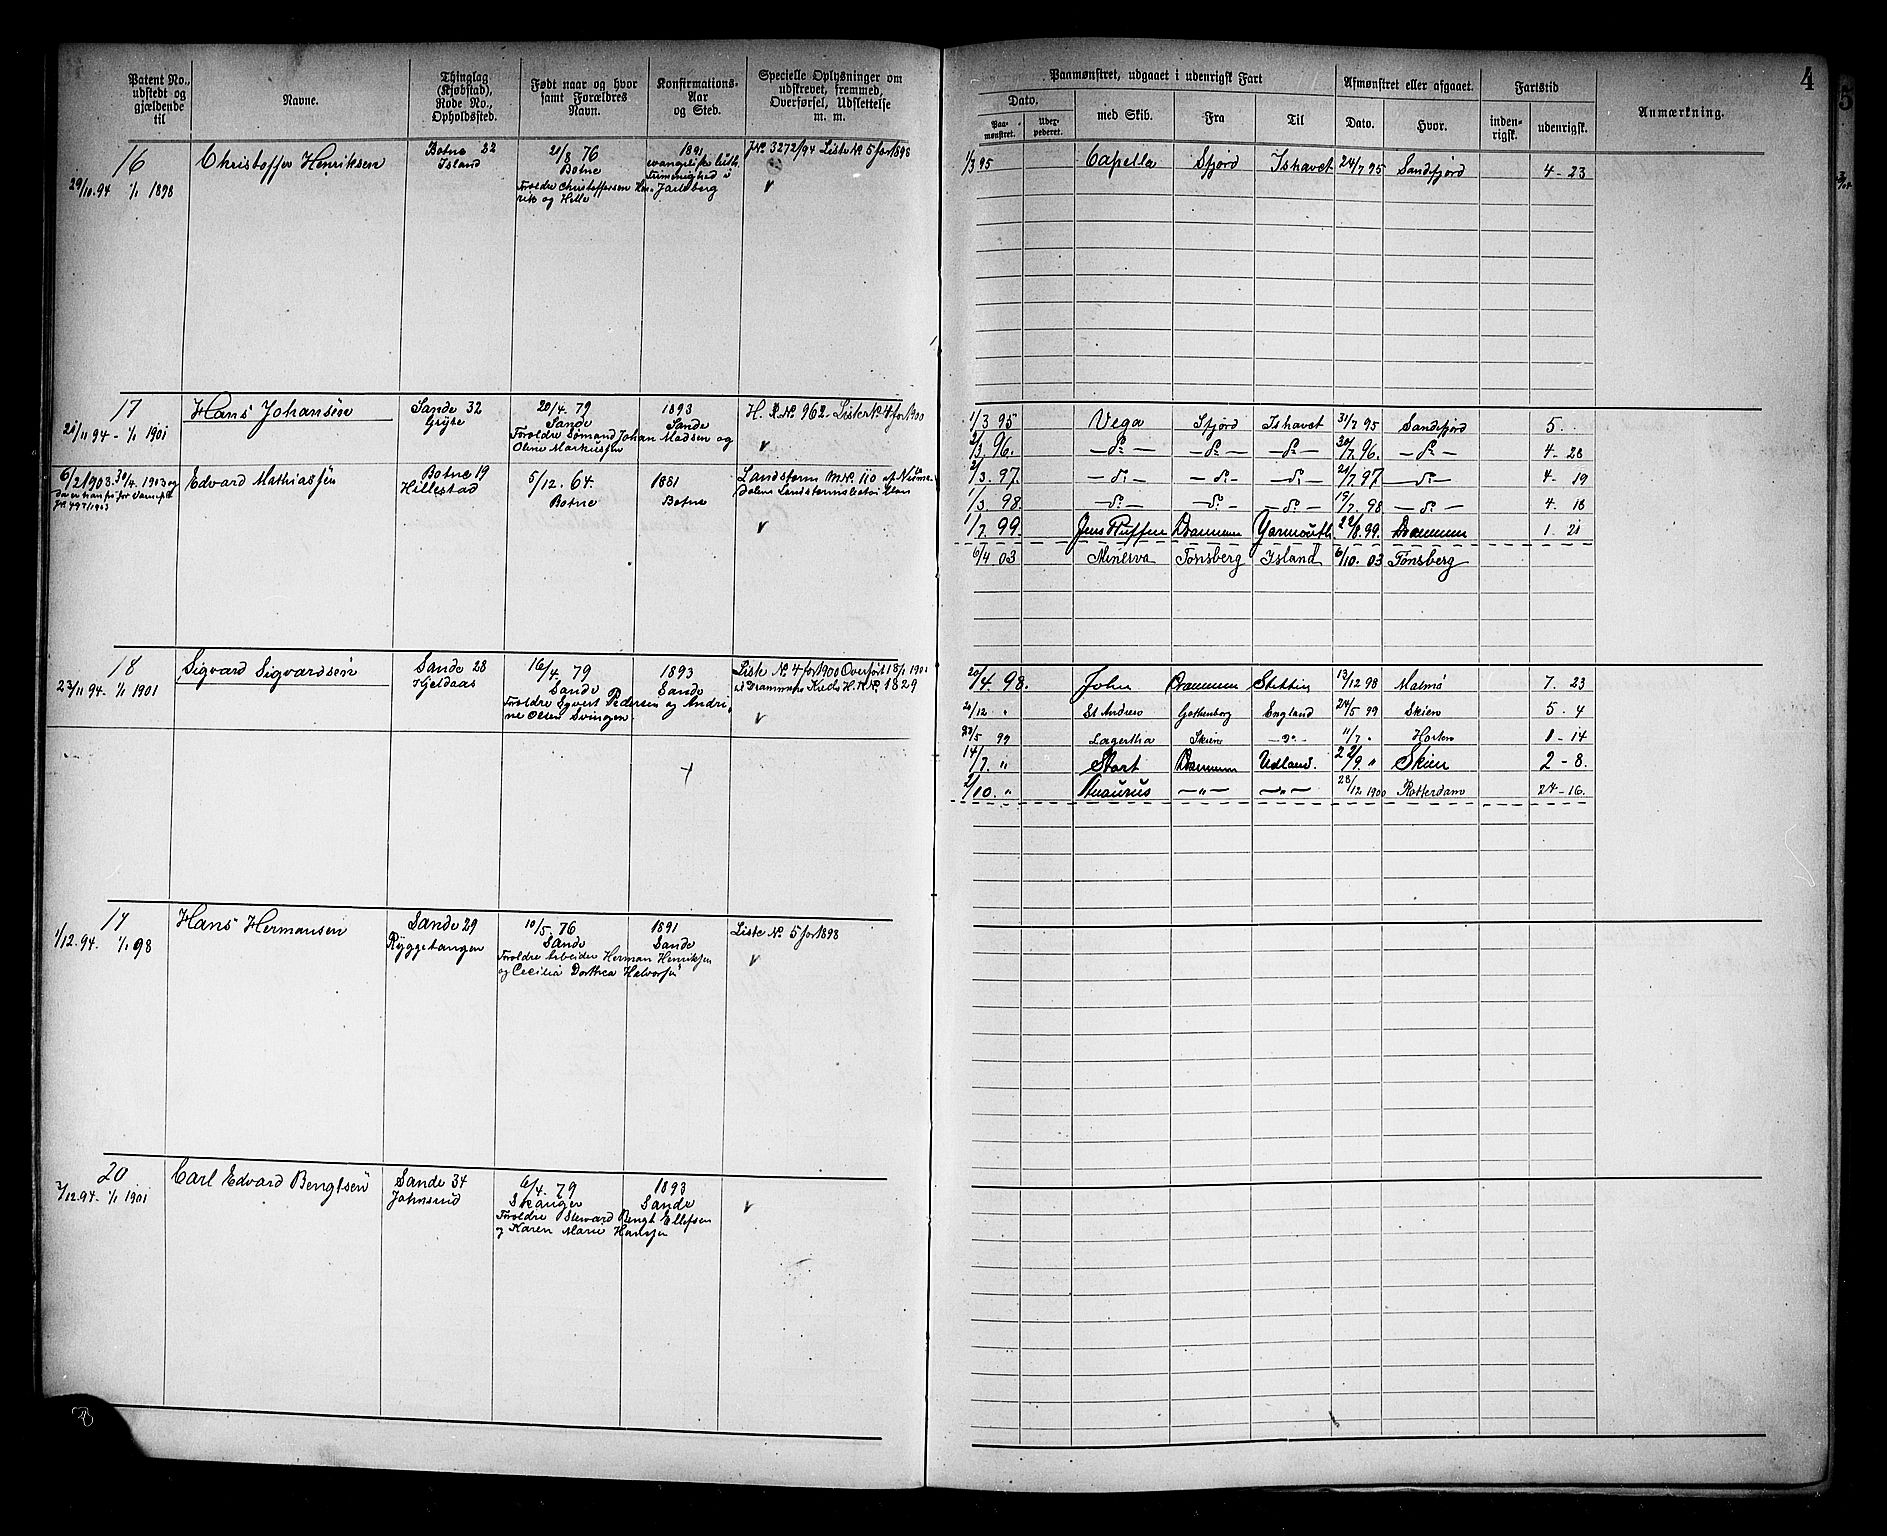 Patent No., udstedt og gjældende til
Navne.
Thinglag (Kjøbstad), Rode No., Opholdssted.
Født naar og hvor samt Forældres Navn.
Konfirmations-Aar og Sted.
Specielle Oplysninger om udskrevet, fremmed, Overførsel, Udslettelse m. m.
16
29/10.94 1/1 1898
Christoffer Henriksen
Botne 22
Island
21/8 76
Botne
Forældre Christoffersen Hen-
rik og Helle
1891
evangelisk luth.
Frimenighed i
Jarlsberg
JNo 3272/94 Liste No 5 for 1898
v
17
21/11 94 - 1/1 1901
Hans Johansen
Sande 32
20/4. 79
Sande
Forældre Sømand Johan Madsen og
Oline Markussen
1893
Sande
H. R.No. 962. Liste No. 4 for 1900
v
6/2 1903. 30/4. 1903 og
Edvard Mathiassen
Botne 19
Hillestad
5/12. 64
Botne
1881
Botne
Landstorm M.No. 110
v
18
23/11 94. 1/1 1901
Sigvard Sigvardsen
Sande 28
Kjeldaas
16/4. 79
Sande
Forældre Syvert Pedersen og Andri-
ne Olsen Svingen
1893
Sande
Liste No 4 for 1900 Overført 18/1 1901
til Drammens Kreds H.R.No. 1829
v
19
1/12.94. 1/1 98
Hans Hermansen
Sande 29
Ryggetangen
10/5. 76
Sande
Forældre Arbeider Herman Henriksen
og Cecilia Dorthea Halvorsen
1891
Sande
Liste No. 5 for 1898
v
20
1/12.94. 1/1 1901
Carl Edvard Bengtsen
Sande 34
Johnsrud
6/4. 79
Skauger
Forældre Steward Bengt Ellefsen
og Karen Marie Hansen
1893
Sande
v
4
Paamønstret, udgaaet i udenrigsk Fart
Afmønstret eller afgaaet.
Fartstid
Anmærkning.
Dato.
Paa-mønstret.
Uder-pederet.
med Skib.
Fra
Til
Dato.
Hvor.
inden-rigsk.
udenrigsk.
1/3 95 Capella Sfjord Ishavet 24/7 95 Sandefjord 4 - 23
1/3 95 Vega Sfjord Ishavet 31/7 95 Sandefjord 5.
2/3 96. — Do — — Do — — Do — 30/7 96. — Do — 4 - 28
2/3. 97. — do — — do — — do — 21/7. 97 — do — 4 - 19
1/3. 98. — do — — do — — do — 19/7. 98 — do — 4. 18
1/7. 99 Drammen Yarmouth 22/8. 99. Drammen 1. 21
6/4 03 Minerva Tønsberg Island 6/10. 03 Tønsberg
20/4. 98. John Drammen Stettin 13/12 98 Malmø 7. 23
20/12 " St Andrew Gothenborg England 24/5 99 Skien 5. 4
28/5 99 Lagertha Skien — Do — 11/7 " Horten 1 - 14
14/7. " Start Drammen Udland. 22/9. " Skien 2 - 8.
2/10. " — " — — " — 28/12 1900 Rotterdam 24 - 16.